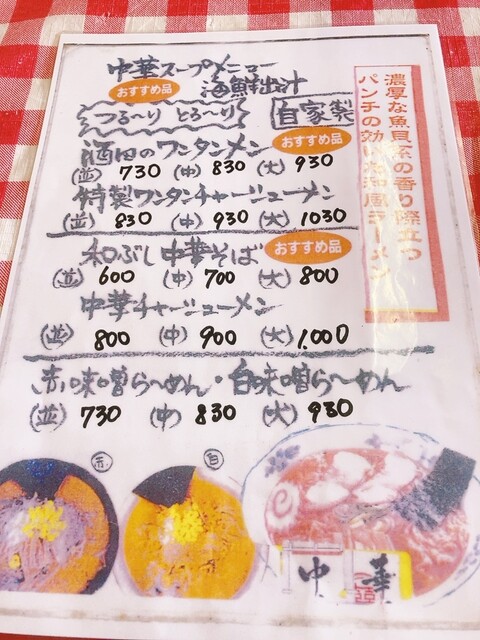 中華スープメニュー
おすすめ品
海鮮出汁
つる〜り とろ〜り
自家製
酒田のワンタンメン おすすめ品
(並) 730 (中) 830 (大) 930
特製ワンタンチャーシューメン
(並) 830 (中) 930 (大) 1030
和ぶし中華そば おすすめ品
(並) 600 (中) 700 (大) 800
中華チャーシューメン
(並) 800 (中) 900 (大) 1,000
赤味噌ら〜めん・白味噌ら〜めん
(並) 730 (中) 830 (大) 930
濃厚な魚貝系の香り際立つ
パンチの効いた和風ラーメン
赤
白
中華